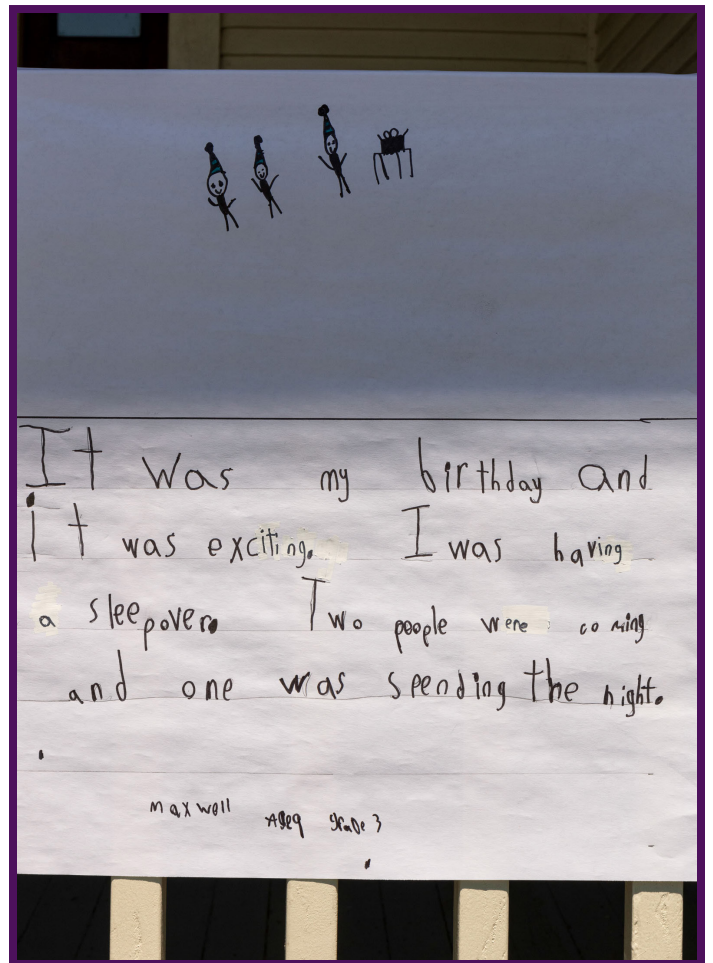 It was my birthday and
it was exciting. I was having
a sleepover. Two people were coming
and one was spending the night.
Maxwell Age 9 grade 3